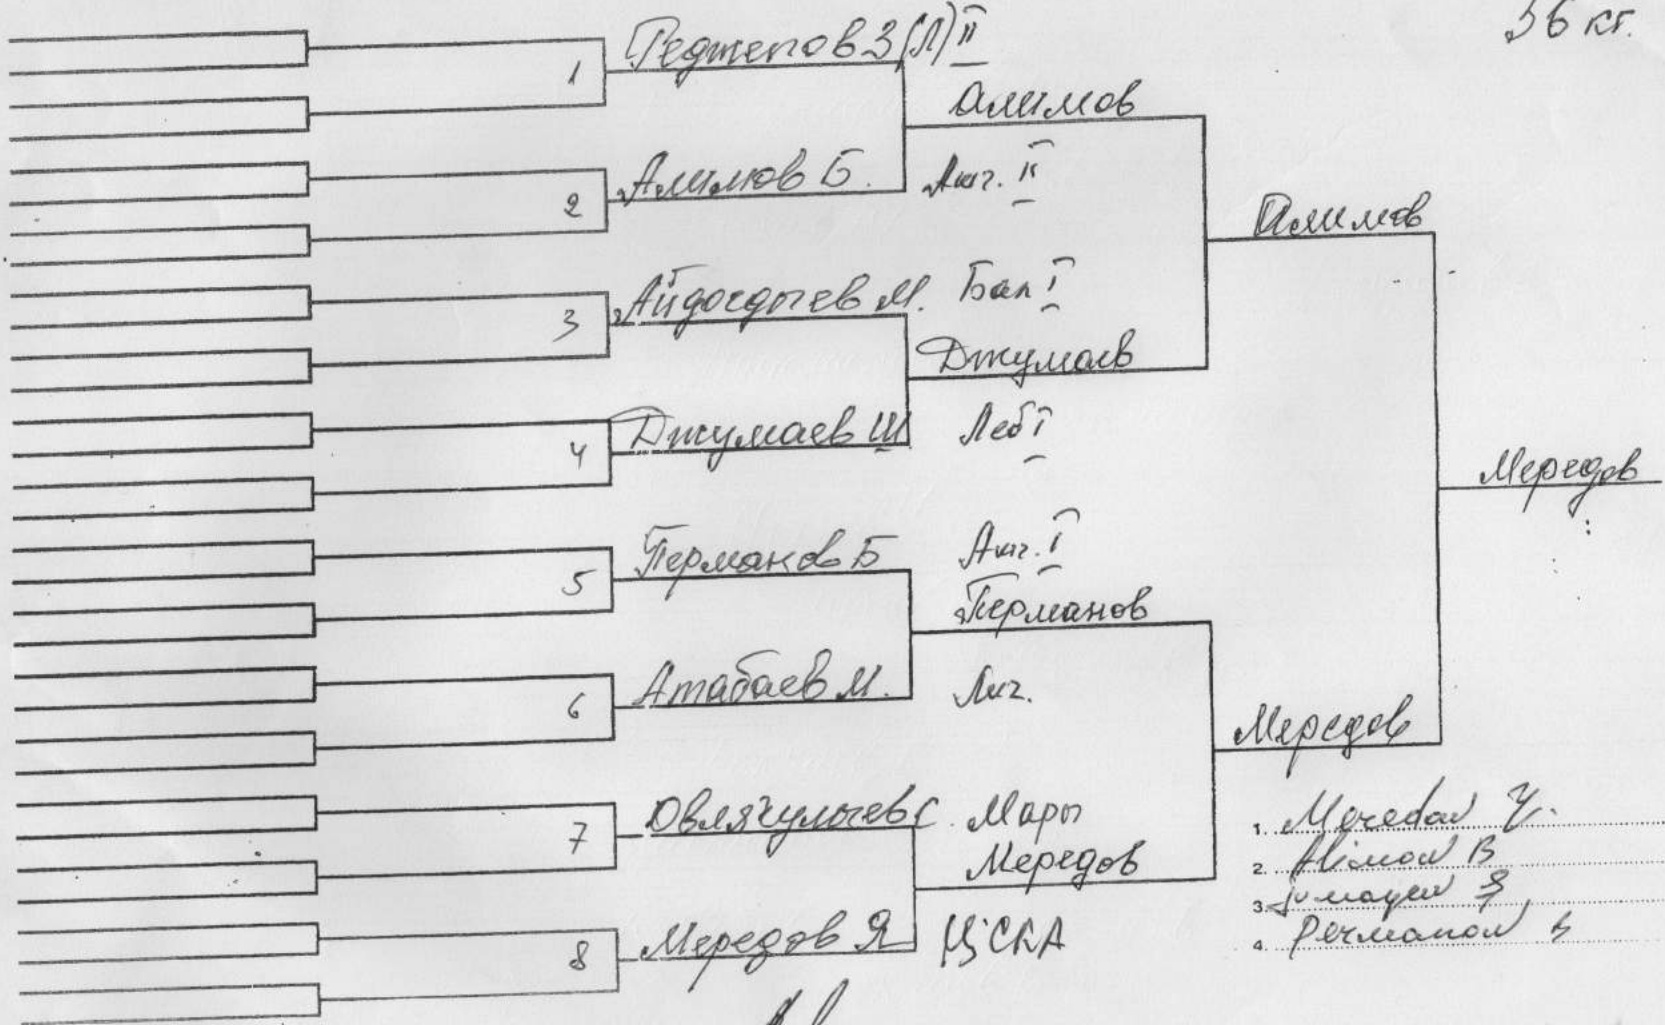 36 кг.
1 Реджепов З (Л) II
Алимов
2 Алимов Б. Акг. II
Алимов
3 Айдогдыев М. Бал I
Джумаев
4 Джумаев Ш Леб I
Мередов
5 Перманов Б Акг. I
Перманов
6 Атабаев М. Акг.
Мередов
7 Овлякулыев С. Мары
Мередов
8 Мередов Я ЦСКА
1. Meredow Y.
2. Alimow B
3. Jumayew Ş
4. Permanow B